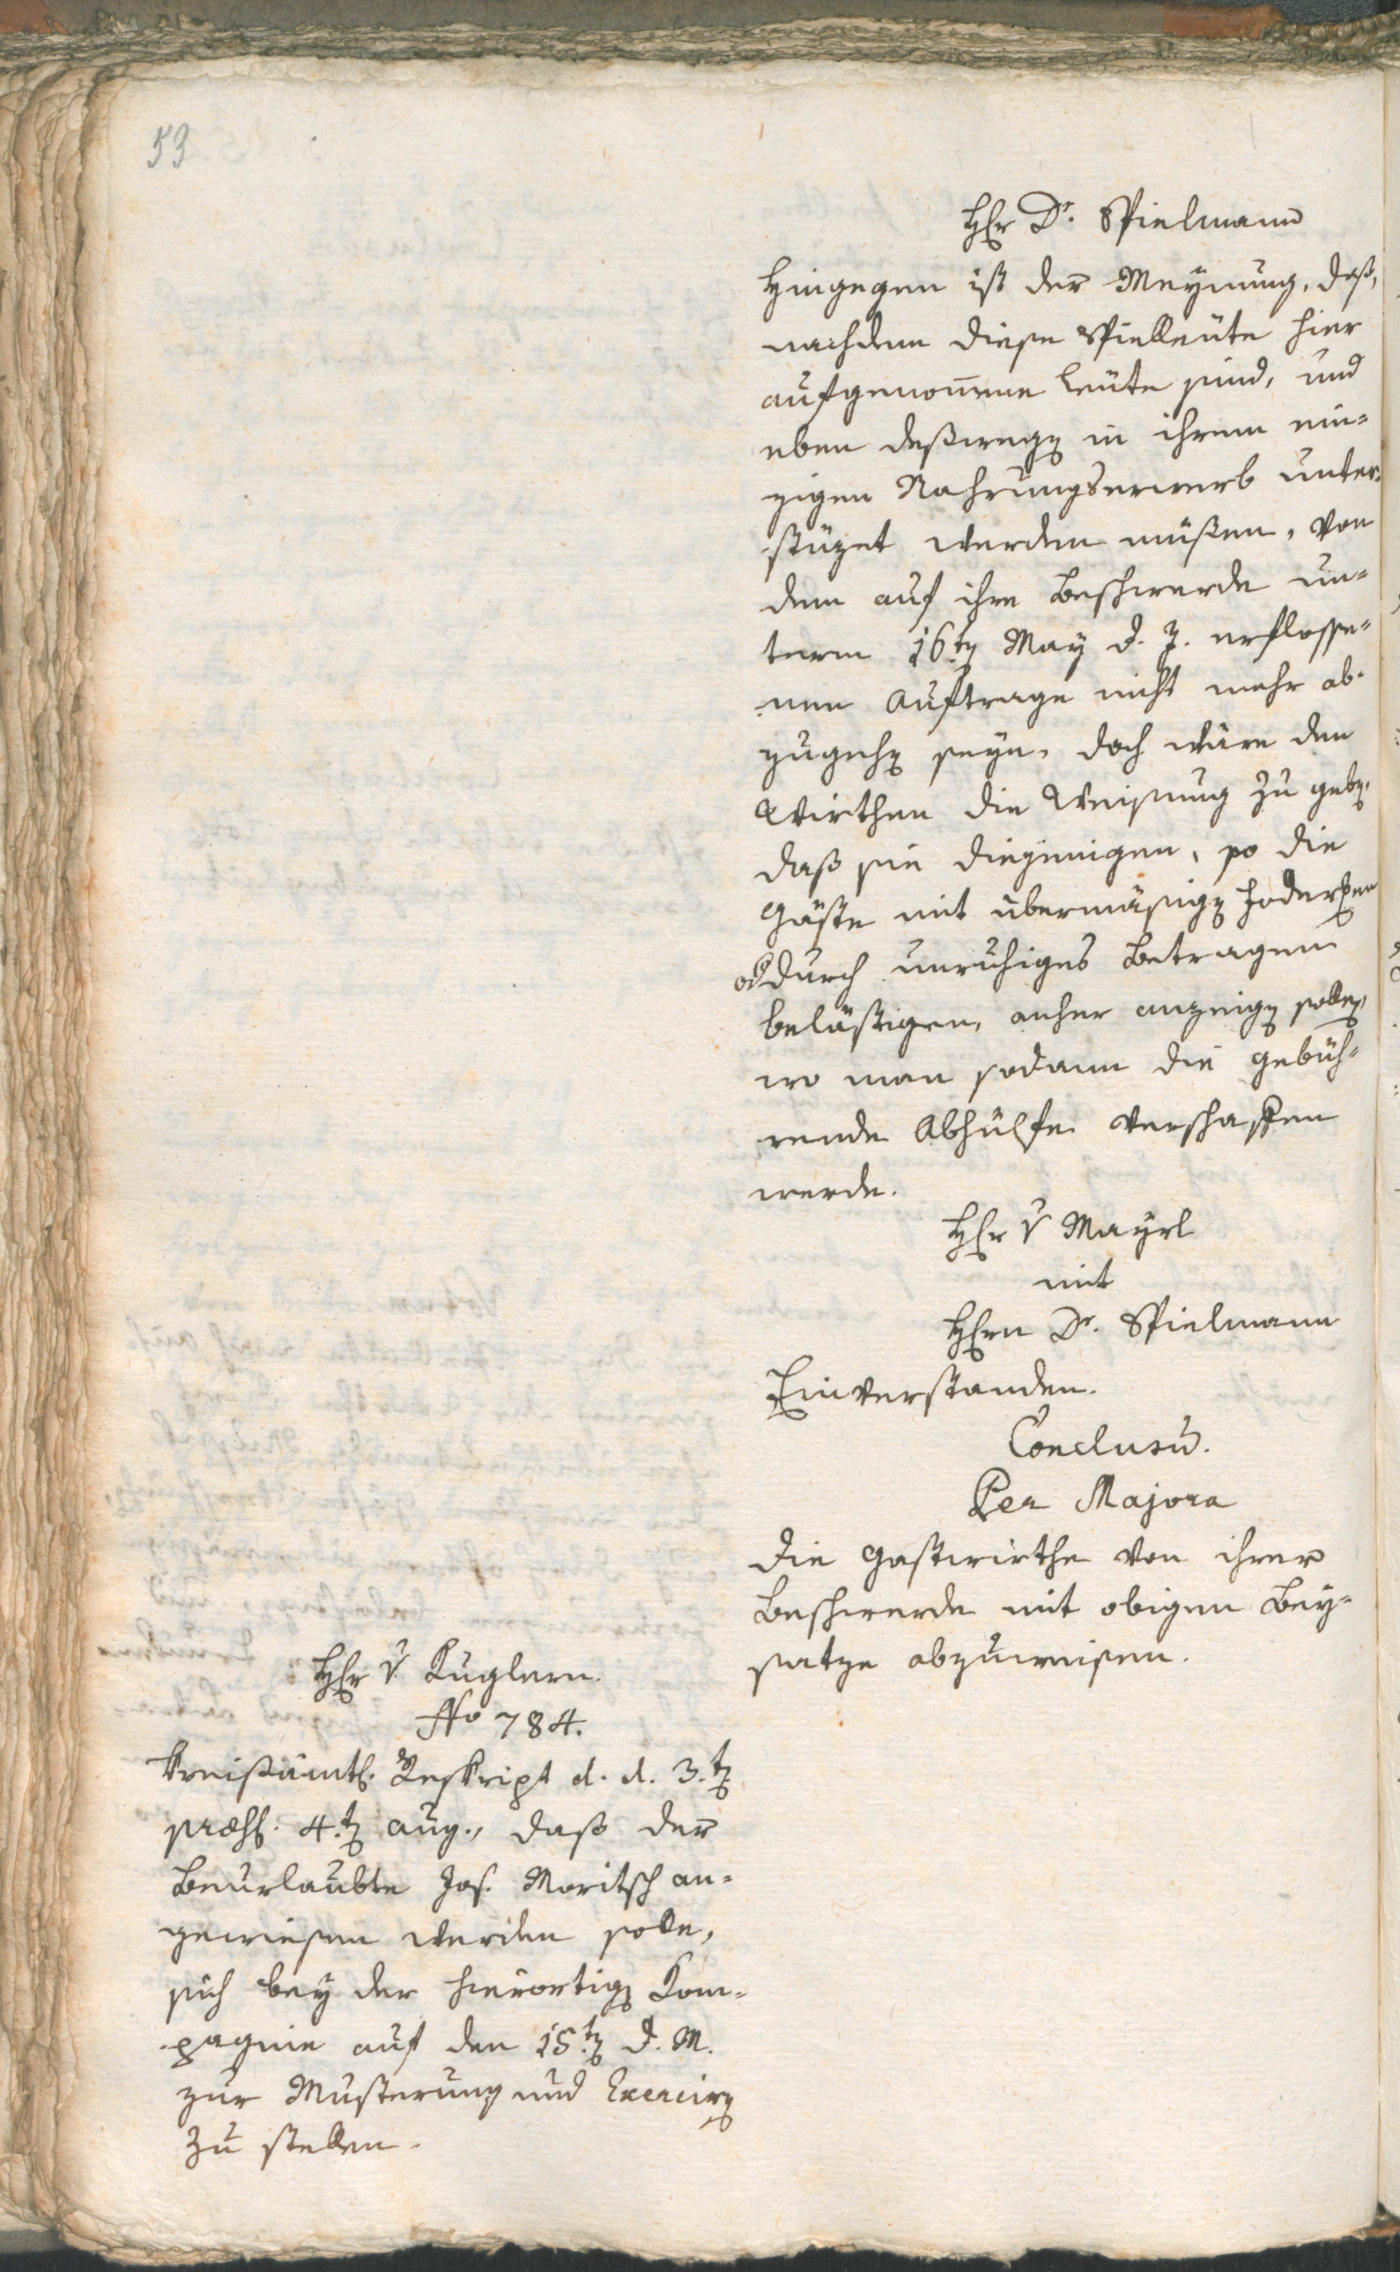 53
Hr Dr. Spielmann
Hingegen ist der Meynung, daß,
nachdem diese Spielleute hier
aufgenommene Leute sind, und
eben deßwegen in ihrem ein-
zigen Nahrungserwerb unter-
stüzet werden müßen, von
dem auf ihre Beschwerde un-
term 16ten May d. J. erflosse-
nen Auftrage nicht mehr ab-
zugehen seyn, doch wäre den
Wirthen die Weisung zu geben,
daß sie diejenigen, so die
Gäste mit übermäßigen Foderungen
od durch unruhiges Betragen
belästigen, anher anzeigen sollen,
wo man sodann die gebüh-
rende Abhülfe verschaffen
werde.
Hr v Mayrl
mit
Hrn Dr. Spielmann
Einverstanden.
Conclusū.
Per Majora
Die Gastwirthe von ihrer
Beschwerde mit obigen Bey-
satze abzuweisen.
Hr v Kuglern.
No 784.
Kreisämtl. Reskript d. d. 3.ten
præs. 4.ten Aug., daß der
Beurlaubte Jos. Moritsch an-
gewiesen werden solle,
sich bey der hierortigen Kom-
pagnie auf den 15.ten d. M.
zur Musterung und Exerciren
zu stellen.